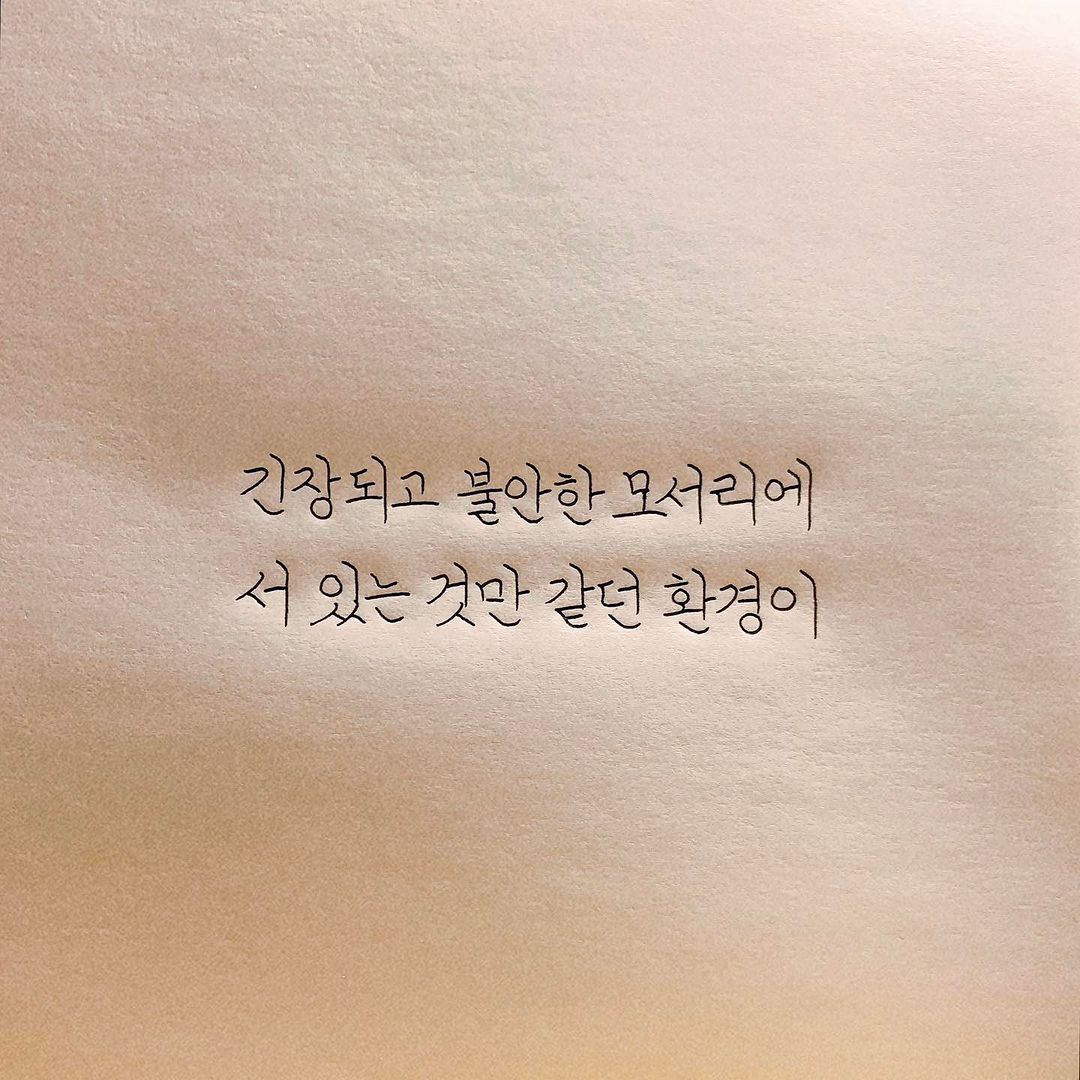 긴장되고 불안한 모서리에
서 있는 것만 같던 환경이